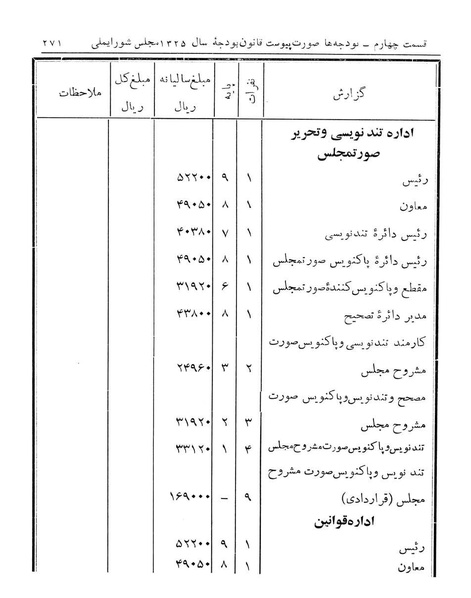 قسمت چهارم - بودجه‌ها صورت پیوست قانون بودجهٔ سال ۱۳۲۵ مجلس شورایملی ۲۷۱
گزارش نفرات پایه مبلغ سالیانه ریال مبلغ کل ریال ملاحظات
اداره تند نویسی و تحریر
صورتمجلس
رئیس ۱ ۹ ۵۲۲۰۰
معاون ۱ ۸ ۴۹۰۵۰
رئیس دائرهٔ تندنویسی ۱ ۷ ۴۰۳۸۰
رئیس دائرهٔ پاکنویس صورتمجلس ۱ ۸ ۴۹۰۵۰
مقطع و پاکنویس کنندهٔ صورتمجلس ۱ ۶ ۳۱۹۲۰
مدیر دائرهٔ تصحیح ۱ ۸ ۴۳۸۰۰
کارمند تندنویسی و پاکنویس صورت
مشروح مجلس ۲ ۳ ۲۴۹۶۰
مصحح و تندنویس و پاکنویس صورت
مشروح مجلس ۳ ۲ ۳۱۹۲۰
تندنویس و پاکنویس صورت مشروح مجلس ۴ ۱ ۳۳۱۲۰
تند نویس و پاکنویس صورت مشروح
مجلس (قراردادی) ۹ – ۱۶۹۰۰۰
اداره قوانین
رئیس ۱ ۹ ۵۲۲۰۰
معاون ۱ ۸ ۴۹۰۵۰